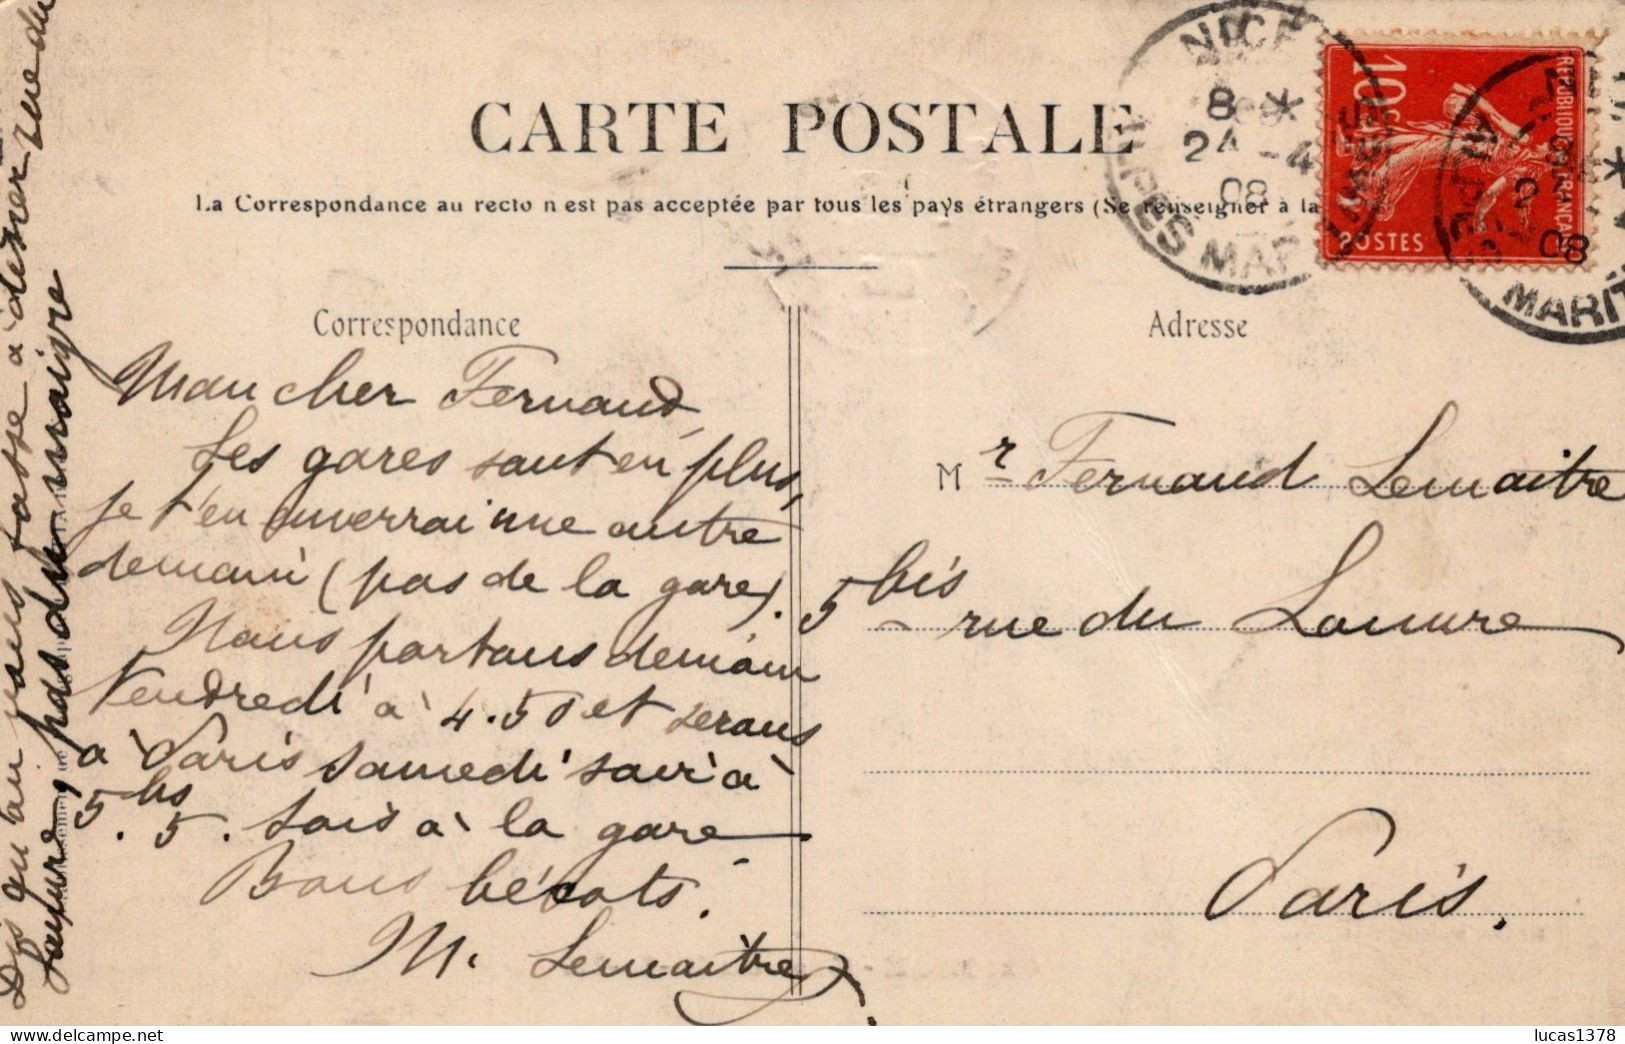 CARTE POSTALE
La Correspondance au recto n'est pas acceptée par tous les pays étrangers (Se renseigner à la
NICE
8 *
24 - 4
08
ALPES MARIT
10c
REPUBLIQUE FRANÇAISE
POSTES
08
MARIT
Correspondance
Adresse
Mon cher Fernand,
Les gares sont en plus,
je t'en enverrai une autre
demain (pas de la gare).
Nous partons demain
Vendredi à 4.50 et serons
à Paris samedi soir à
5.bis 5. Sois à la gare
Bons bécots.
M. Lemaitre
Dis qu'on vous fasse à dîner rue du
Louvre, pas du
Mr Fernand Lemaitre
5 bis rue du Louvre
Paris.
lucas1378